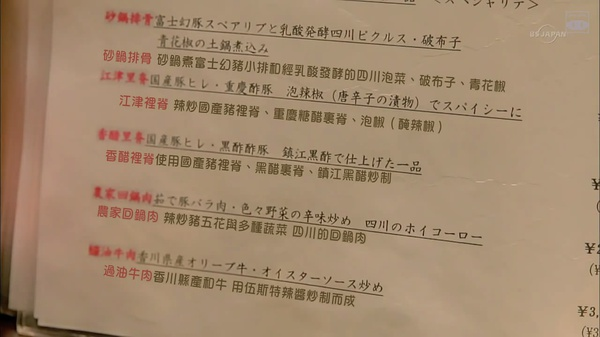 ＜スペシャリテ＞
BS JAPAN
砂鍋排骨 富士幻豚スペアリブと乳酸発酵四川ピクルス・破布子
青花椒の土鍋煮込み
砂鍋排骨 砂鍋煮富士幻豬小排和經乳酸發酵的四川泡菜、破布子、青花椒
江津里脊 国産豚ヒレ・重慶酢豚 泡辣椒（唐辛子の漬物）でスパイシーに
江津裡脊 辣炒國產豬裡脊、重慶糖醋裏脊、泡椒（醃辣椒）
香醋里脊 国産豚ヒレ・黒酢酢豚 鎮江黒酢で仕上げた一品
香醋裡脊 使用國產豬裡脊、黑醋裏脊、鎮江黑醋炒制
農家回鍋肉 茹で豚バラ肉・色々野菜の辛味炒め 四川のホイコーロー
農家回鍋肉 辣炒豬五花與多種蔬菜 四川的回鍋肉
蠔油牛肉 香川県産オリーブ牛・オイスターソース炒め
過油牛肉 香川縣產和牛 用伍斯特辣醬炒制而成
¥3,